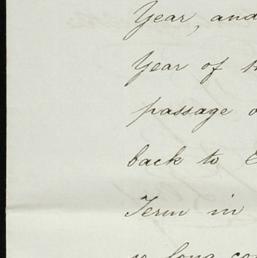 Year, and
Year of
passage
back to
Term in
so long